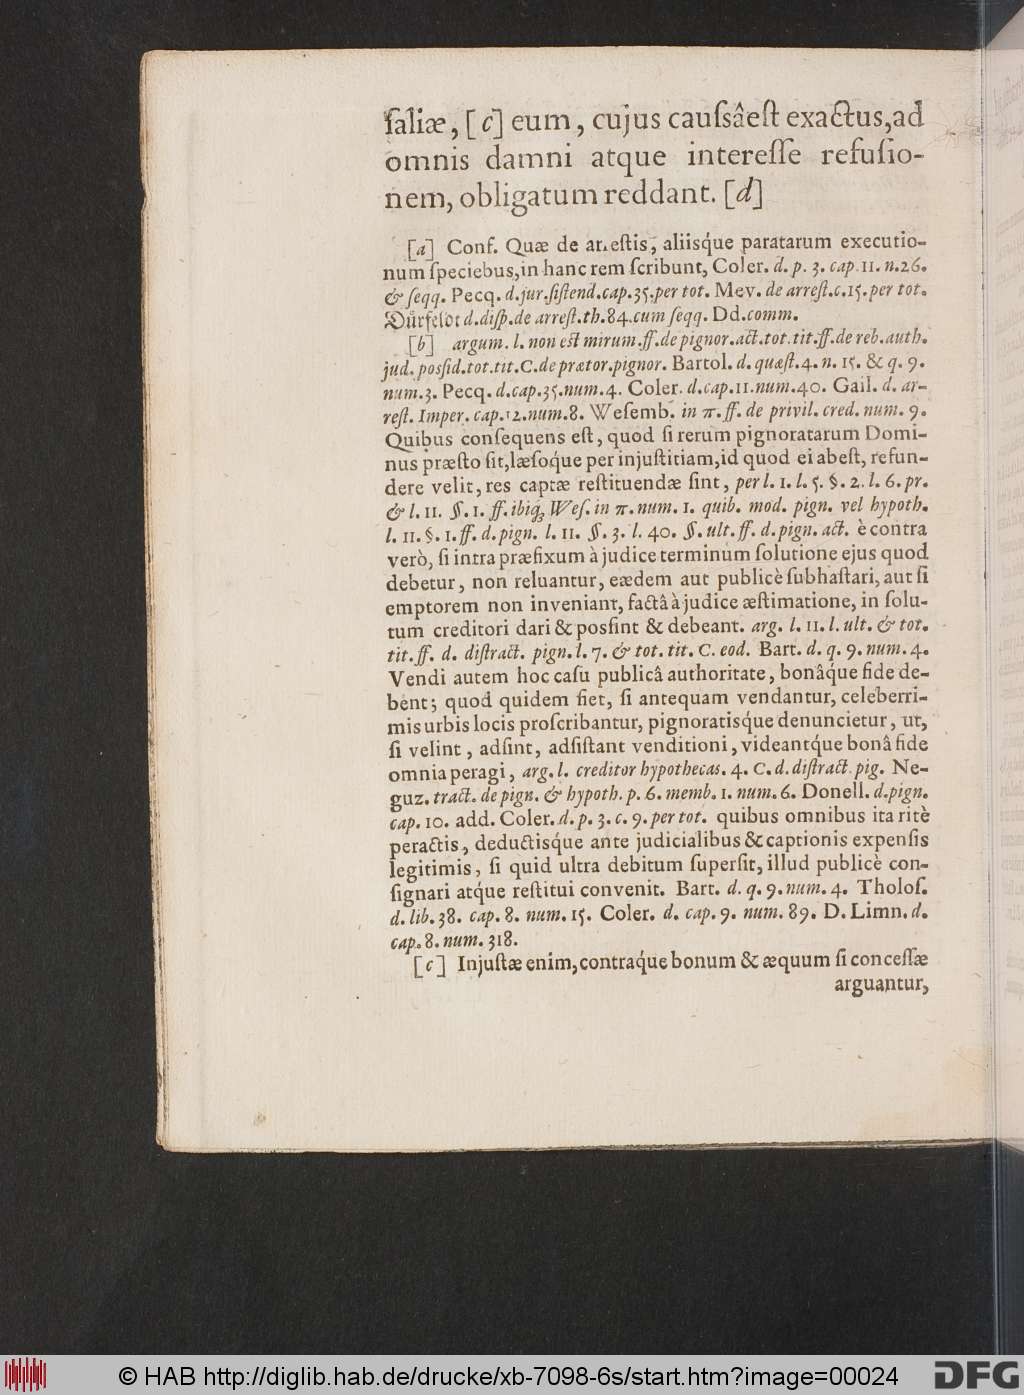 ſaliæ, [c] eum, cujus cauſsâ eſt exactus, ad
omnis damni atque intereſſe refuſio-
nem, obligatum reddant. [d]
[a] Conf. Quæ de arreſtis, aliisq́ue paratarum executio-
num ſpeciebus, in hanc rem ſcribunt, Coler. d. p. 3. cap. 11. n. 26.
& ſeqq. Pecq. d. jur. ſiſtend. cap. 35. per tot. Mev. de arreſt. c. 15. per tot.
Dürfeldt d. diſp. de arreſt. th. 84. cum ſeqq. Dd. comm.
[b] argum. l. non eſt mirum. ff. de pignor. act. tot. tit. ff. de reb. auth.
jud. poſſid. tot. tit. C. de prætor. pignor. Bartol. d. quæſt. 4. n. 15. & q. 9.
num. 3. Pecq. d. cap. 35. num. 4. Coler. d. cap. 11. num. 40. Gail. d. ar-
reſt. Imper. cap. 12. num. 8. Weſemb. in π. ff. de privil. cred. num. 9.
Quibus conſequens eſt, quod ſi rerum pignoratarum Domi-
nus præſto ſit, læſoq́ue per injuſtitiam, id quod ei abeſt, refun-
dere velit, res captæ reſtituendæ ſint, per l. 1. l. 5. §. 2. l. 6. pr.
& l. 11. §. 1. ff. ibiq́ꝫ Weſ. in π. num. 1. quib. mod. pign. vel hypoth.
l. 11. §. 1. ff. d. pign. l. 11. §. 3. l. 40. §. ult. ff. d. pign. act. è contra
verò, ſi intra præfixum à judice terminum ſolutione ejus quod
debetur, non reluantur, eædem aut publicè ſubhaſtari, aut ſi
emptorem non inveniant, factâ à judice æſtimatione, in ſolu-
tum creditori dari & poſſint & debeant. arg. l. 11. l. ult. & tot.
tit. ff. d. diſtract. pign. l. 7. & tot. tit. C. eod. Bart. d. q. 9. num. 4.
Vendi autem hoc caſu publicâ authoritate, bonâq́ue fide de-
bent; quod quidem fiet, ſi antequam vendantur, celeberri-
mis urbis locis proſcribantur, pignoratisq́ue denuncietur, ut,
ſi velint, adſint, adſiſtant venditioni, videantq́ue bonâ fide
omnia peragi, arg. l. creditor hypothecas. 4. C. d. diſtract. pig. Ne-
guz. tract. de pign. & hypoth. p. 6. memb. 1. num. 6. Donell. d. pign.
cap. 10. add. Coler. d. p. 3. c. 9. per tot. quibus omnibus ita ritè
peractis, deductisq́ue ante judicialibus & captionis expenſis
legitimis, ſi quid ultra debitum ſuperſit, illud publicè con-
ſignari atq́ue reſtitui convenit. Bart. d. q. 9. num. 4. Tholoſ.
d. lib. 38. cap. 8. num. 15. Coler. d. cap. 9. num. 89. D. Limn. d.
cap. 8. num. 318.
[c] Injuſtæ enim, contraq́ue bonum & æquum ſi conceſſæ
arguantur,
© HAB http://diglib.hab.de/drucke/xb-7098-6s/start.htm?image=00024
DFG